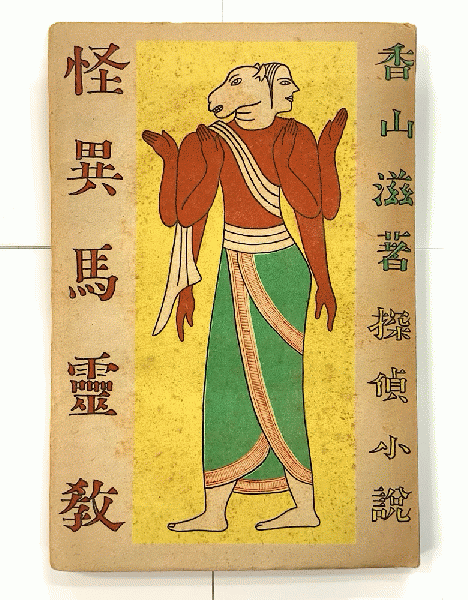 香山滋著探偵小説
怪異馬靈教